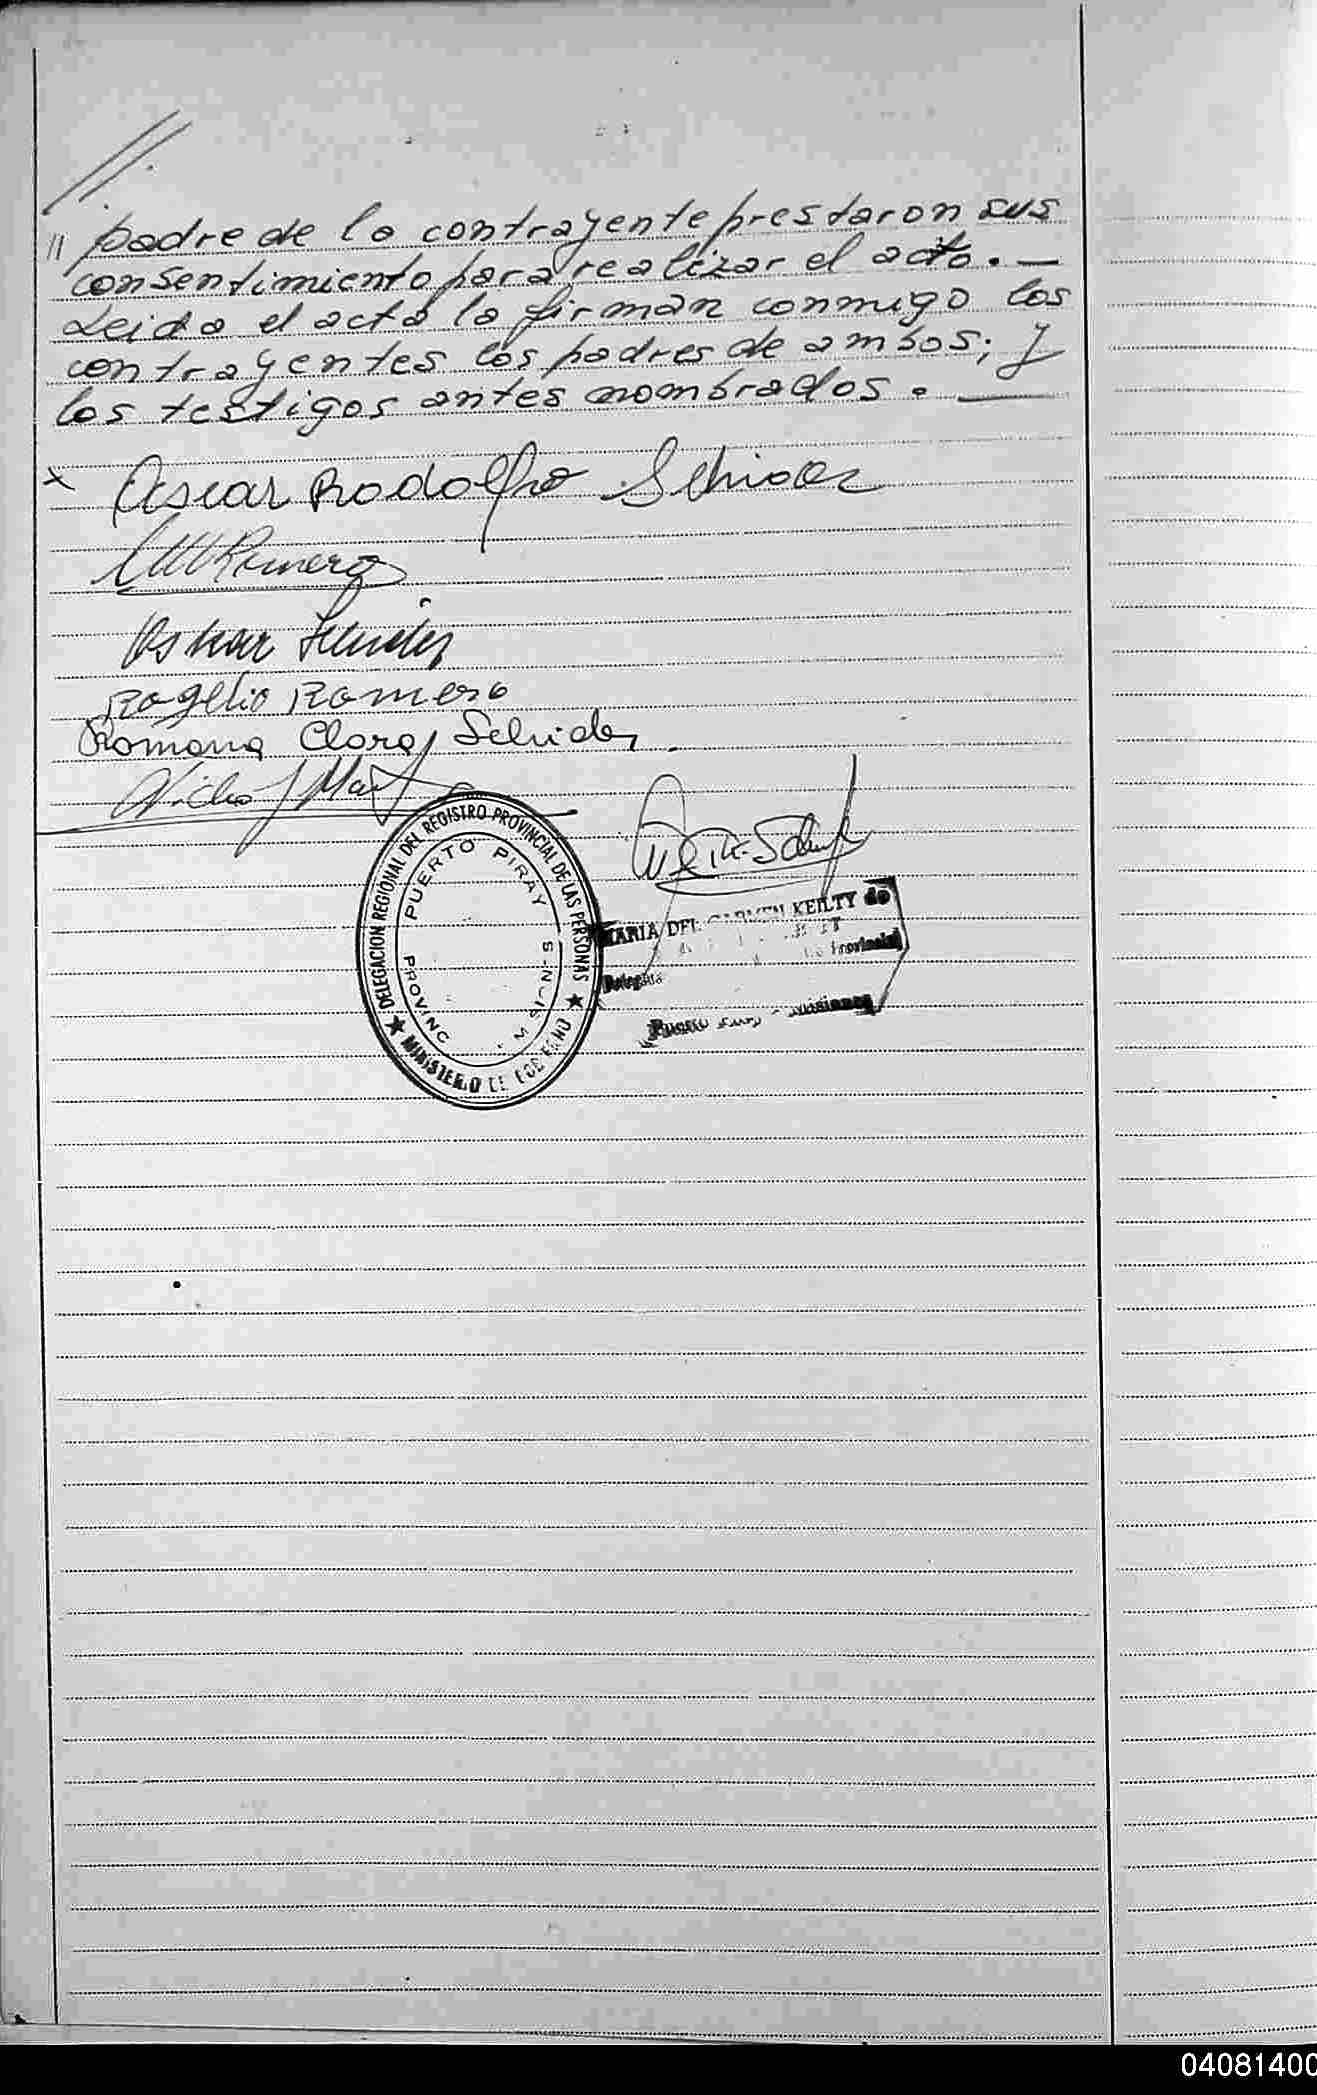 //.
// padre de la contrayente prestaron sus
consentimiento para realizar el acto. —
Leida el acta la firman conmigo los
contrayentes los padres de ambos; y
los testigos antes nombrados. —
x Oscar Rodolfo
Romero
Oskar
Rogelio Romero
Romana Clara
DELEGACION REGIONAL DEL REGISTRO PROVINCIAL DE LAS PERSONAS
PUERTO PIRAY
MINISTERIO DE
MARIA DEL CARMEN KEILTY de
Provincial
04081400